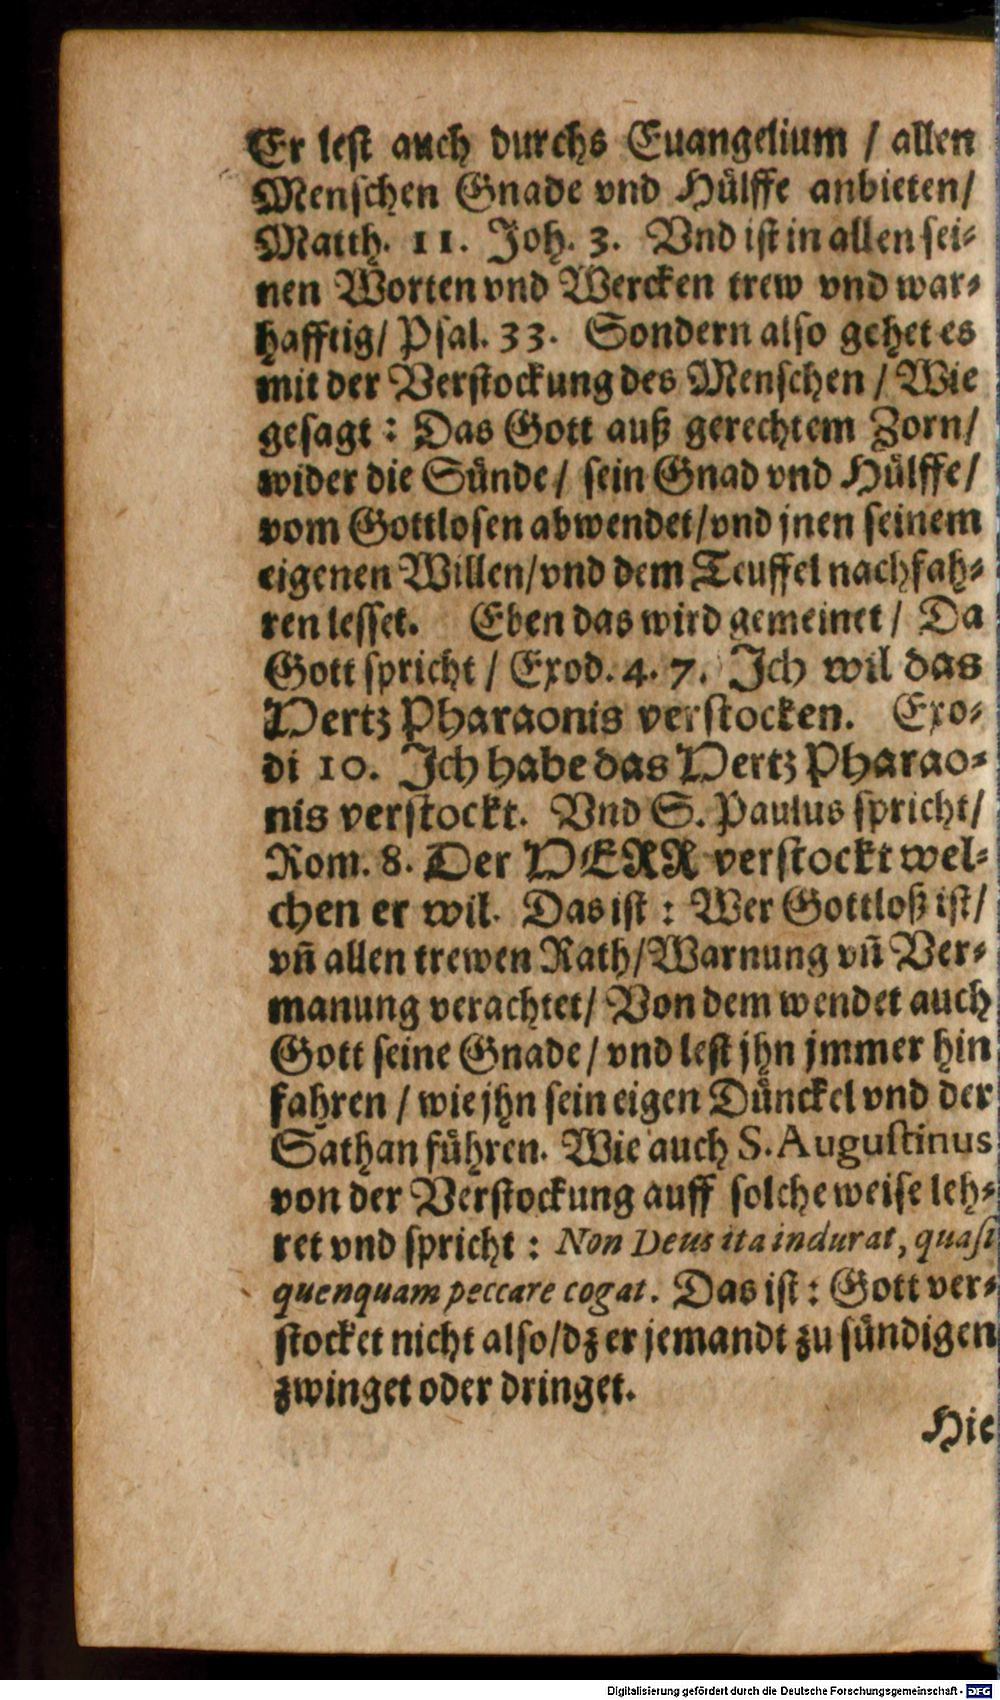 Er lest auch durchs Euangelium / allen
Menschen Gnade vnd Hülffe anbieten/
Matth. 11. Joh. 3. Vnd ist in allen sei-
nen Worten vnd Wercken trew vnd war-
hafftig/ Psal. 33. Sondern also gehet es
mit der Verstockung des Menschen / Wie
gesagt: Das Gott auß gerechtem Zorn/
wider die Sünde/ sein Gnad vnd Hülffe/
vom Gottlosen abwendet/vnd jnen seinem
eigenen Willen/vnd dem Teuffel nachfah-
ren lesset. Eben das wird gemeinet / Da
Gott spricht / Exod. 4. 7. Ich wil das
Hertz Pharaonis verstocken. Exo-
di 10. Ich habe das Hertz Pharao-
nis verstockt. Vnd S. Paulus spricht/
Rom. 8. Der HERR verstockt wel-
chen er wil. Das ist: Wer Gottloß ist/
vñ allen trewen Rath/Warnung vñ Ver-
manung verachtet/ Von dem wendet auch
Gott seine Gnade/ vnd lest jhn jmmer hin
fahren / wie jhn sein eigen Dünckel vnd der
Sathan führen. Wie auch S. Augustinus
von der Verstockung auff solche weise leh-
ret vnd spricht: Non Deus ita indurat, quasi
quenquam peccare cogat. Das ist: Gott ver-
stocket nicht also/dz er jemandt zu sündigen
zwinget oder dringet.
Hie
Digitalisierung gefördert durch die Deutsche Forschungsgemeinschaft - DFG